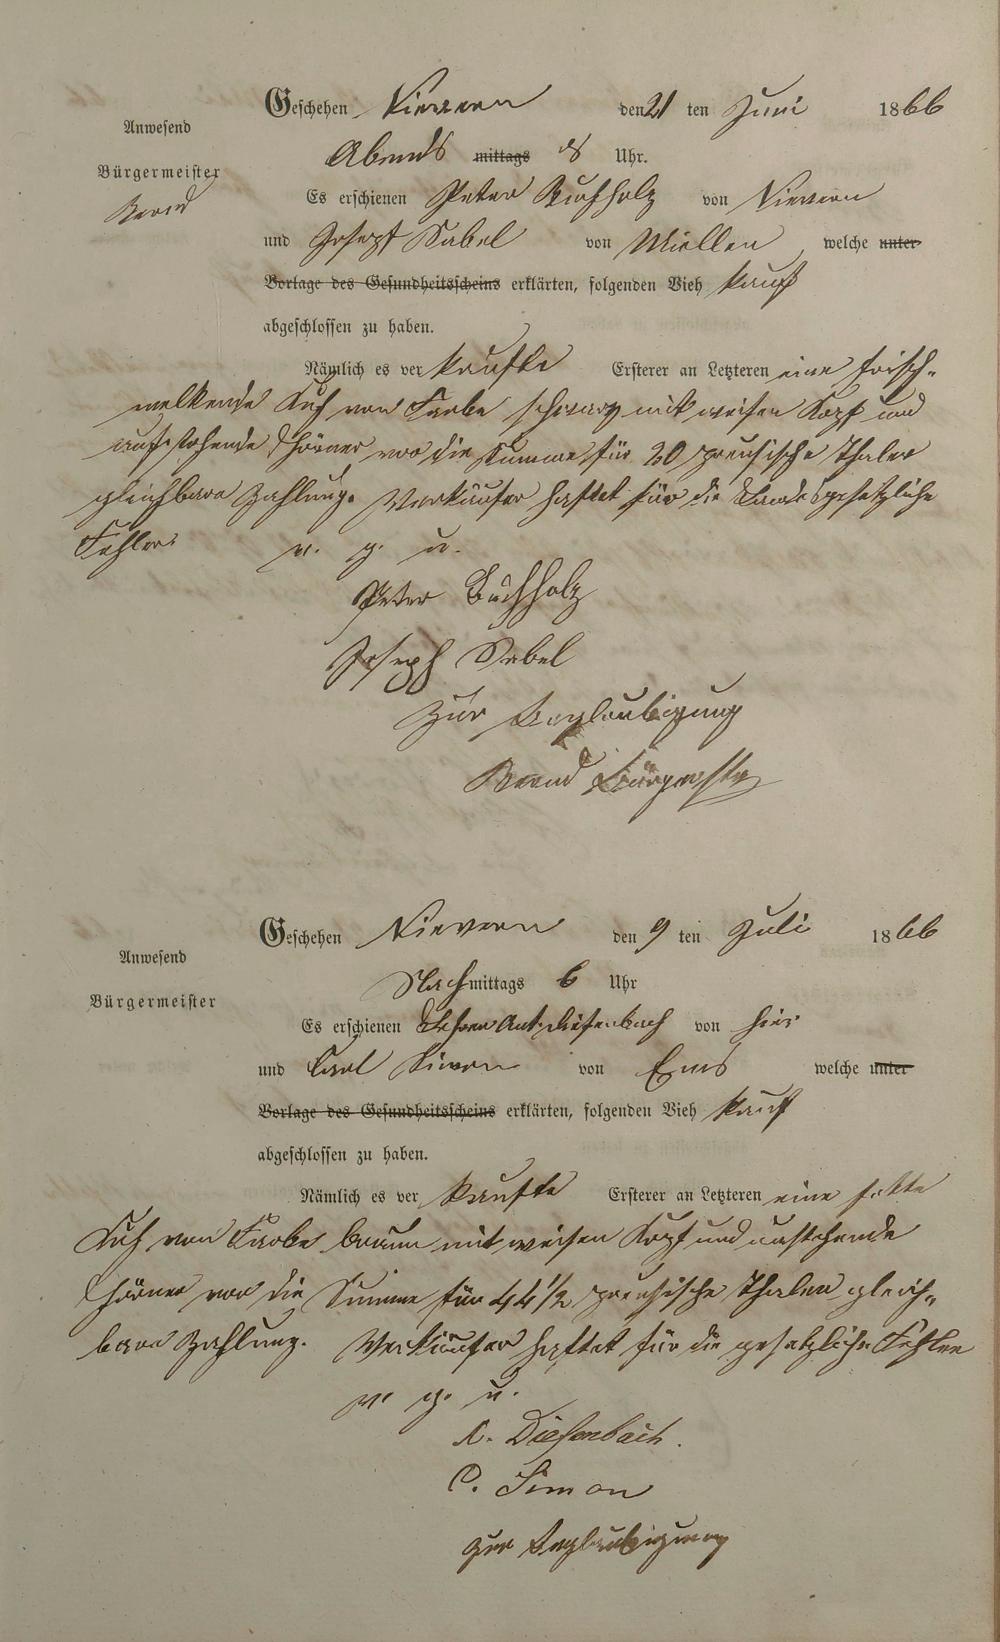 Geschehen Nievern den 21 ten Juni 1866
Anwesend
Abends mittags 8 Uhr.
Bürgermeister
Es erschienen Peter Buchholz von Nievern
und Joseph Sabel von Miellen, welche unter
Vorlage des Gesundheitsscheins erklärten, folgenden Vieh kauf
abgeschlossen zu haben.
Nämlich es ver kaufte Ersterer an Letzteren eine frisch-
melkende Kuh von Farbe schwarz mit weisen Kopf und
aufstehende Hörner vor die Summe für 20 preusische Thaler
gleichbare Zahlung. Verkäufer haftet für die Landesgesetzliche
Fehler. v. g. u.
Peter Buchholz
Joseph Sabel
Zur Beglaubigung
Bürgerstr
Geschehen Nievern den 9 ten Juli 1866
Anwesend
Nachmittags 6 Uhr
Bürgermeister
Es erschienen Lehrer Ant. Diefenbach von hier
und Carl Simon von Ems welche unter
Vorlage des Gesundheitsscheins erklärten, folgenden Vieh kauf
abgeschlossen zu haben.
Nämlich es ver kaufte Ersterer an Letzteren eine fette
Kuh von Farbe braun mit weisen Kopf und aufstehende
Hörner vor die Summe für 44 1/2 preusische Thaler gleich-
bare Zahlung. Verkäufer haftet für die gesetzliche Fehler
v. g. u.
A. Diefenbach.
C. Simon
Zur Beglaubigung